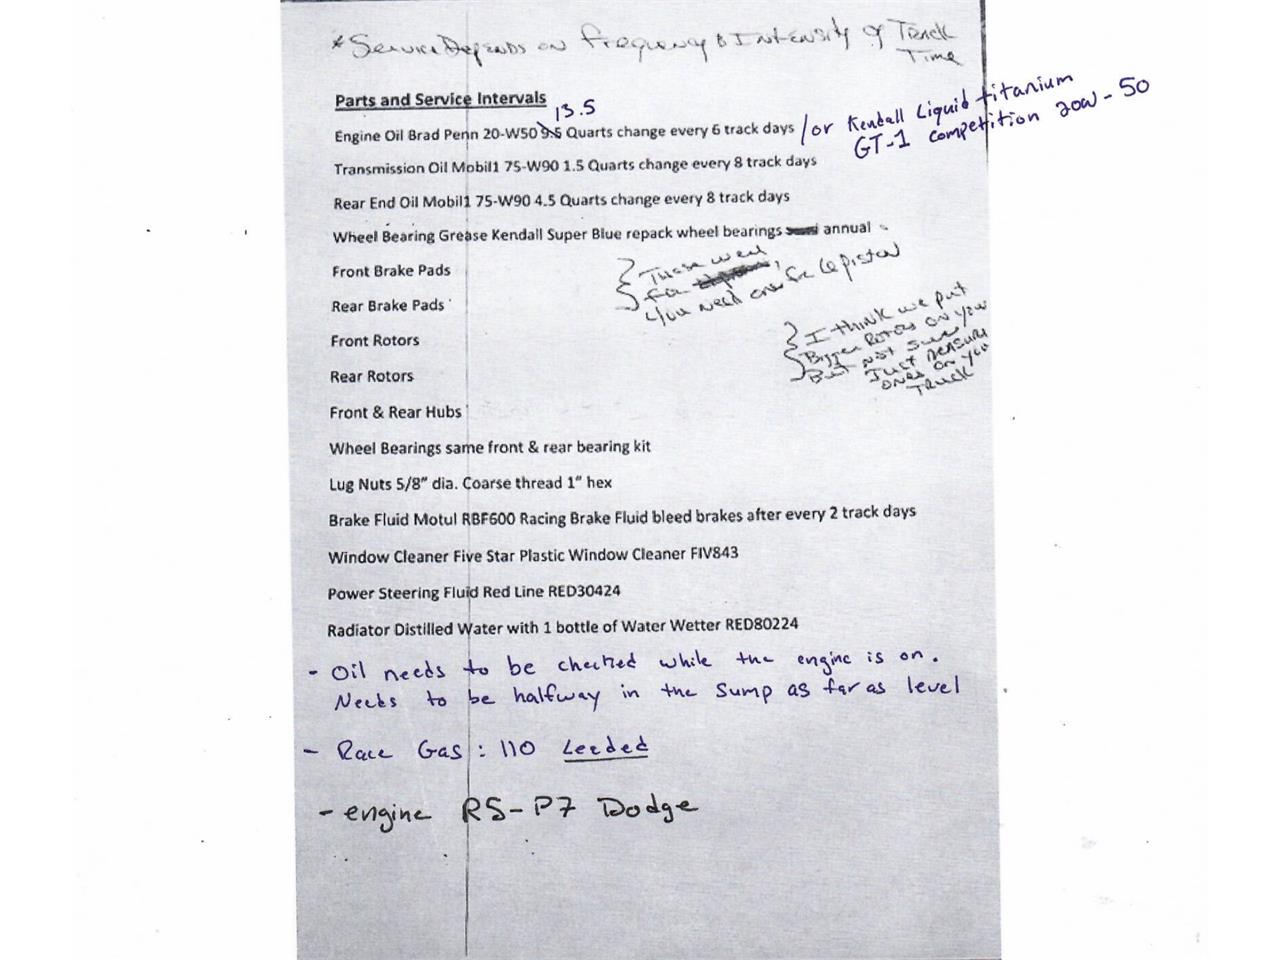 * Service Depends on frequency & Intensity of Track
Time
Parts and Service Intervals
13.5
Engine Oil Brad Penn 20-W50 9.5 Quarts change every 6 track days / or Kendall Liquid titanium
GT-1 competition 20W-50
Transmission Oil Mobil1 75-W90 1.5 Quarts change every 8 track days
Rear End Oil Mobil1 75-W90 4.5 Quarts change every 8 track days
Wheel Bearing Grease Kendall Super Blue repack wheel bearings annual
Front Brake Pads
Rear Brake Pads
These were
for
you need ones for 6 piston
Front Rotors
Rear Rotors
I think we put
Bigger Rotors on your
But not sure
Just measure
ones on you
Truck
Front & Rear Hubs
Wheel Bearings same front & rear bearing kit
Lug Nuts 5/8" dia. Coarse thread 1" hex
Brake Fluid Motul RBF600 Racing Brake Fluid bleed brakes after every 2 track days
Window Cleaner Five Star Plastic Window Cleaner FIV843
Power Steering Fluid Red Line RED30424
Radiator Distilled Water with 1 bottle of Water Wetter RED80224
- Oil needs to be checked while the engine is on.
Needs to be halfway in the sump as far as level
- Race Gas: 110 Leeded
- engine RS-P7 Dodge